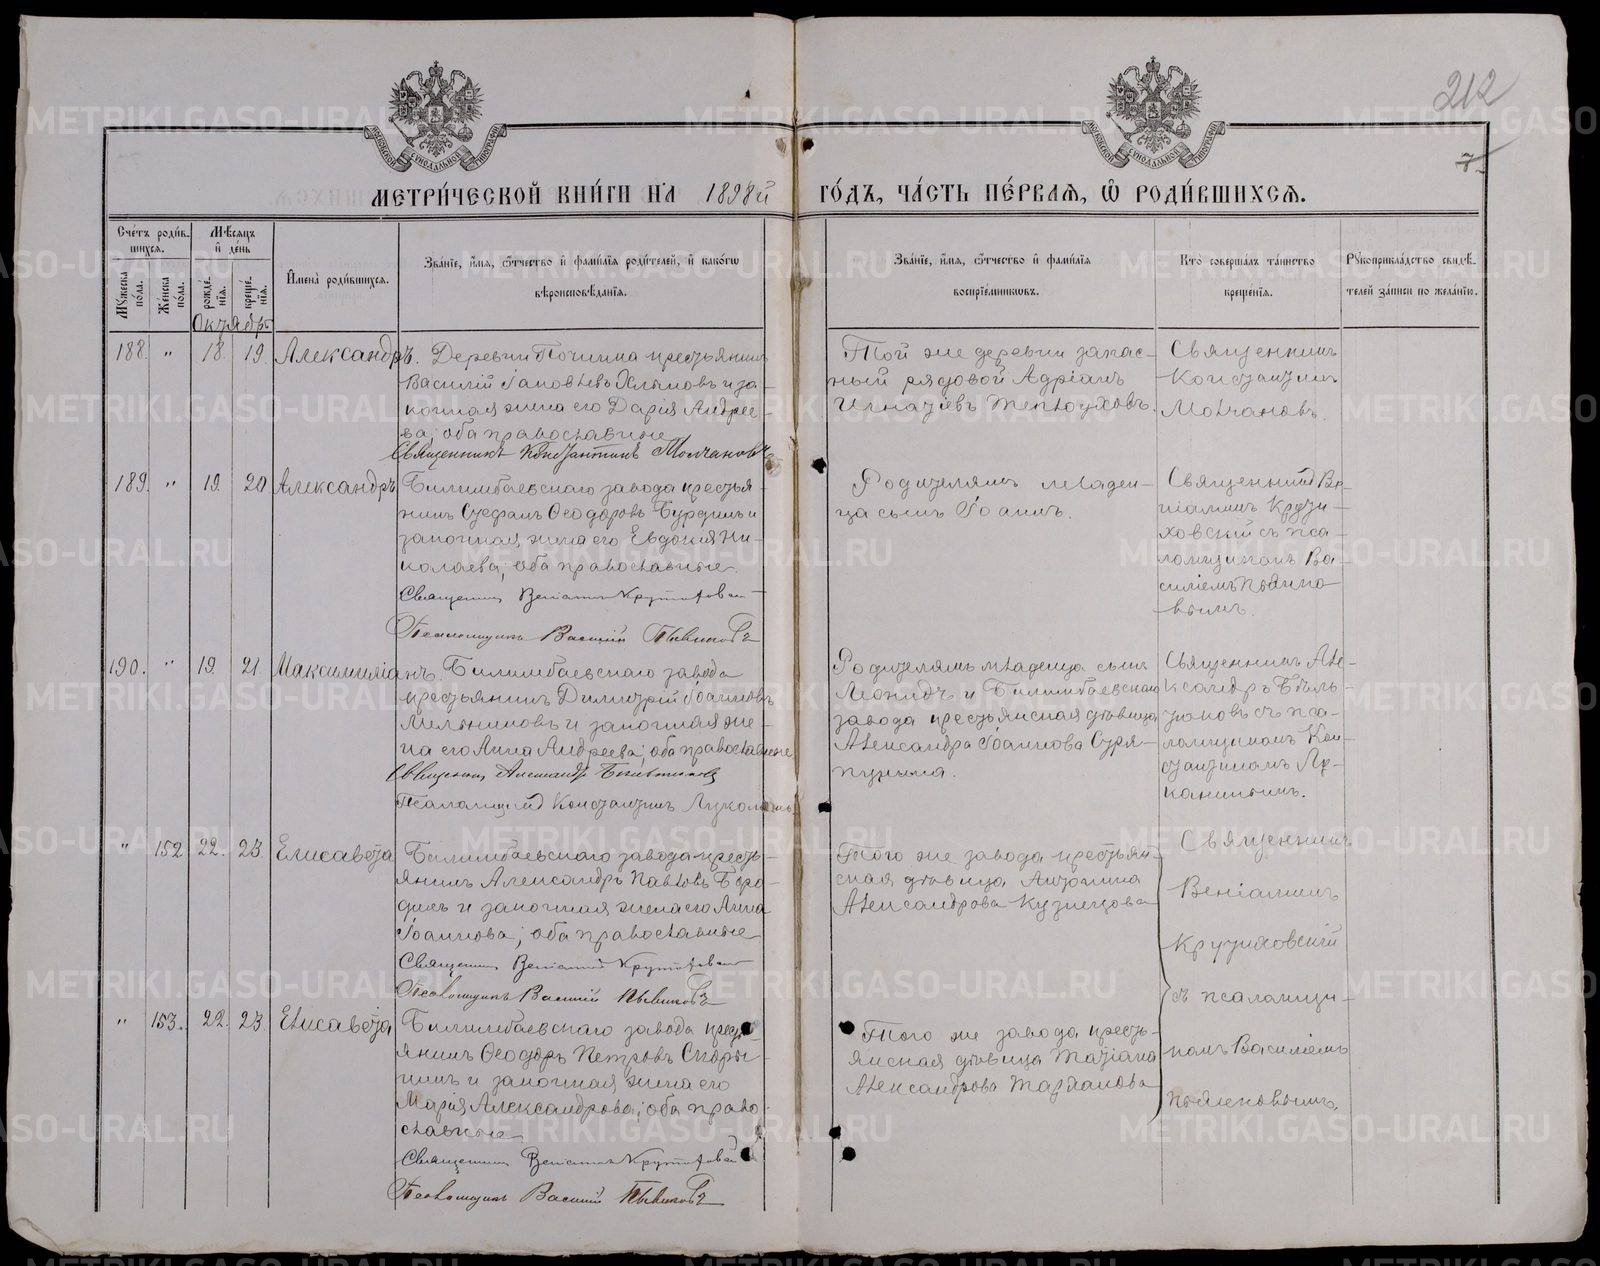 212
7
МОСКОВСКОЙ СѴНОДАЛЬНОЙ ТИПОГРАФІИ
МОСКОВСКОЙ СѴНОДАЛЬНОЙ ТИПОГРАФІИ
МЕТРИ́ЧЕСКОЙ КНИ́ГИ НА 1898й ГО́ДЪ, ЧА́СТЬ ПЕ́РВАЯ, Ѽ РОДИ́ВШИХСЯ.
Сче́тъ роди́в-
шихся.
Мѣ́сяцъ
и҆ де́нь
Мꙋ́жеска по́ла.
Же́нска по́ла.
рожде́нїя.
креще́нїя.
Октябрь
И҆мена̀ роди́вшихся.
Зва́нїе, и҆́мя, ѻ҆́тчество и҆ фами́лїя роди́телей, и҆ како́гѡ
вѣроисповѣ́данїя.
Зва́нїе, и҆́мя, ѻ҆́тчество и҆ фами́лїя
воспрїе́мникѡвъ.
Кто̀ соверша́лъ та́инство
креще́нїя.
Рꙋкоприкла́дство свидѣ́-
телей за́писи по жела́нїю.
188. " 18. 19. Александръ.
Деревни Починка крестьянинъ
Василій Іаковлевъ и за-
конная жена его Дарія Андрее-
ва; оба православные
Священникъ Константинъ Молчановъ
Той же деревни запас-
ный рядовой Адріанъ
Игнатіевъ Желтоуховъ.
Священникъ
Константинъ
Молчановъ.
189. " 19. 20 Александръ
Билимбаевскаго завода крестья-
нинъ Стефанъ Ѳеодоровъ Бурдинъ и
законная жена его Евдокія Ни-
колаева; оба православные.
Священник Веніамин Крутиховский
Псаломщикъ Василий
Родителямъ младен-
ца сынъ Іоаннъ.
Священникъ Ве-
ніаминъ Крути-
ховскій съ пса-
ломщикомъ Ва-
силіемъ
190. " 19. 21 Максимиліанъ.
Билимбаевскаго завода
крестьянинъ Димитрій Іоанновъ
Мельниковъ и законная же-
на его Анна Андреева; оба православные
Священник Александр
Псаломщик Константинъ
Родителямъ младенца сынъ
Леонидъ и Билимбаевскаго
завода крестьянская дѣвица
Александра Іоаннова
Священникъ Але-
ксандръ
съ пса-
ломщикомъ Кон-
стантиномъ Лу-
канинымъ.
" 152 22. 23. Елисавета
Билимбаевскаго завода кресть-
янинъ Александръ Павловъ Боро-
динъ и законная жена его Анна
Іоаннова; оба православные
Священник Веніамин Крутиховский
Псаломщикъ Василий
Того же завода крестьян-
ская дѣвица Антонина
Александрова Кузнецова
Священникъ
Веніаминъ
Крутиховскій
съ псаломщи-
комъ Василіемъ
" 153. 22. 23 Елисавета
Билимбаевскаго завода кресть-
янинъ Ѳеодоръ Петровъ Скоры-
нинъ и законная жена его
Марія Александрова; оба право-
славные
Священник Веніамин Крутиховский
Псаломщикъ Василий
Того же завода кресть-
янская дѣвица Татіана
Александрова
METRIKI.GASO-URAL.RU